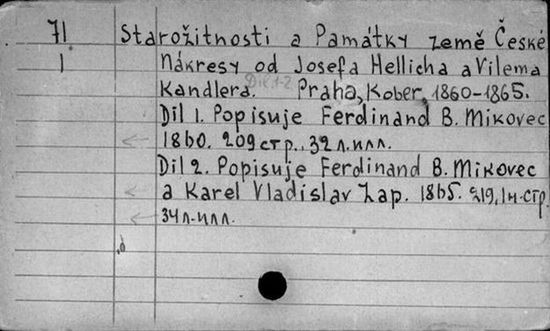 71 Starožitnosti a Památky země České
1 Nákresy od Josefa Hellicha a Vilema
Kandlera. Díl 1-2 Praha, Kober, 1860-1865.
Díl 1. Popisuje Ferdinand B. Mikovec
1860. 209 стр., 32 л. илл.
Díl 2. Popisuje Ferdinand B. Mikovec
a Karel Vladislav Zap. 1865. 219, 1 н. стр.
34 л. илл.